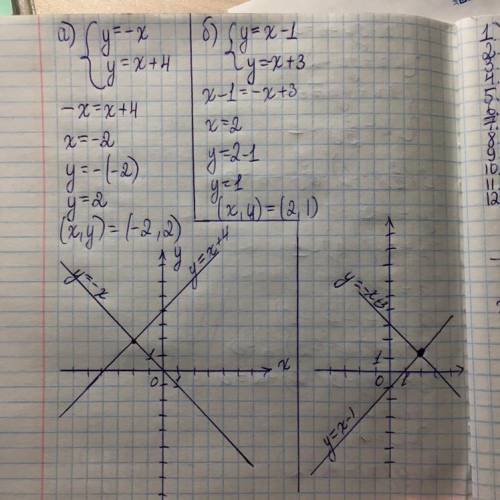 а) { y=-x
y=x+4
-x=x+4
x=-2
y=-(-2)
y=2
(x,y)=(-2,2)
б) { y=x-1
y=-x+3
x-1=-x+3
x=2
y=2-1
y=1
(x,y)=(2,1)
y
y=-x
y=x+4
1
x
0
1
y=-x+3
1
0
1
y=x-1
1
2
10
11
12